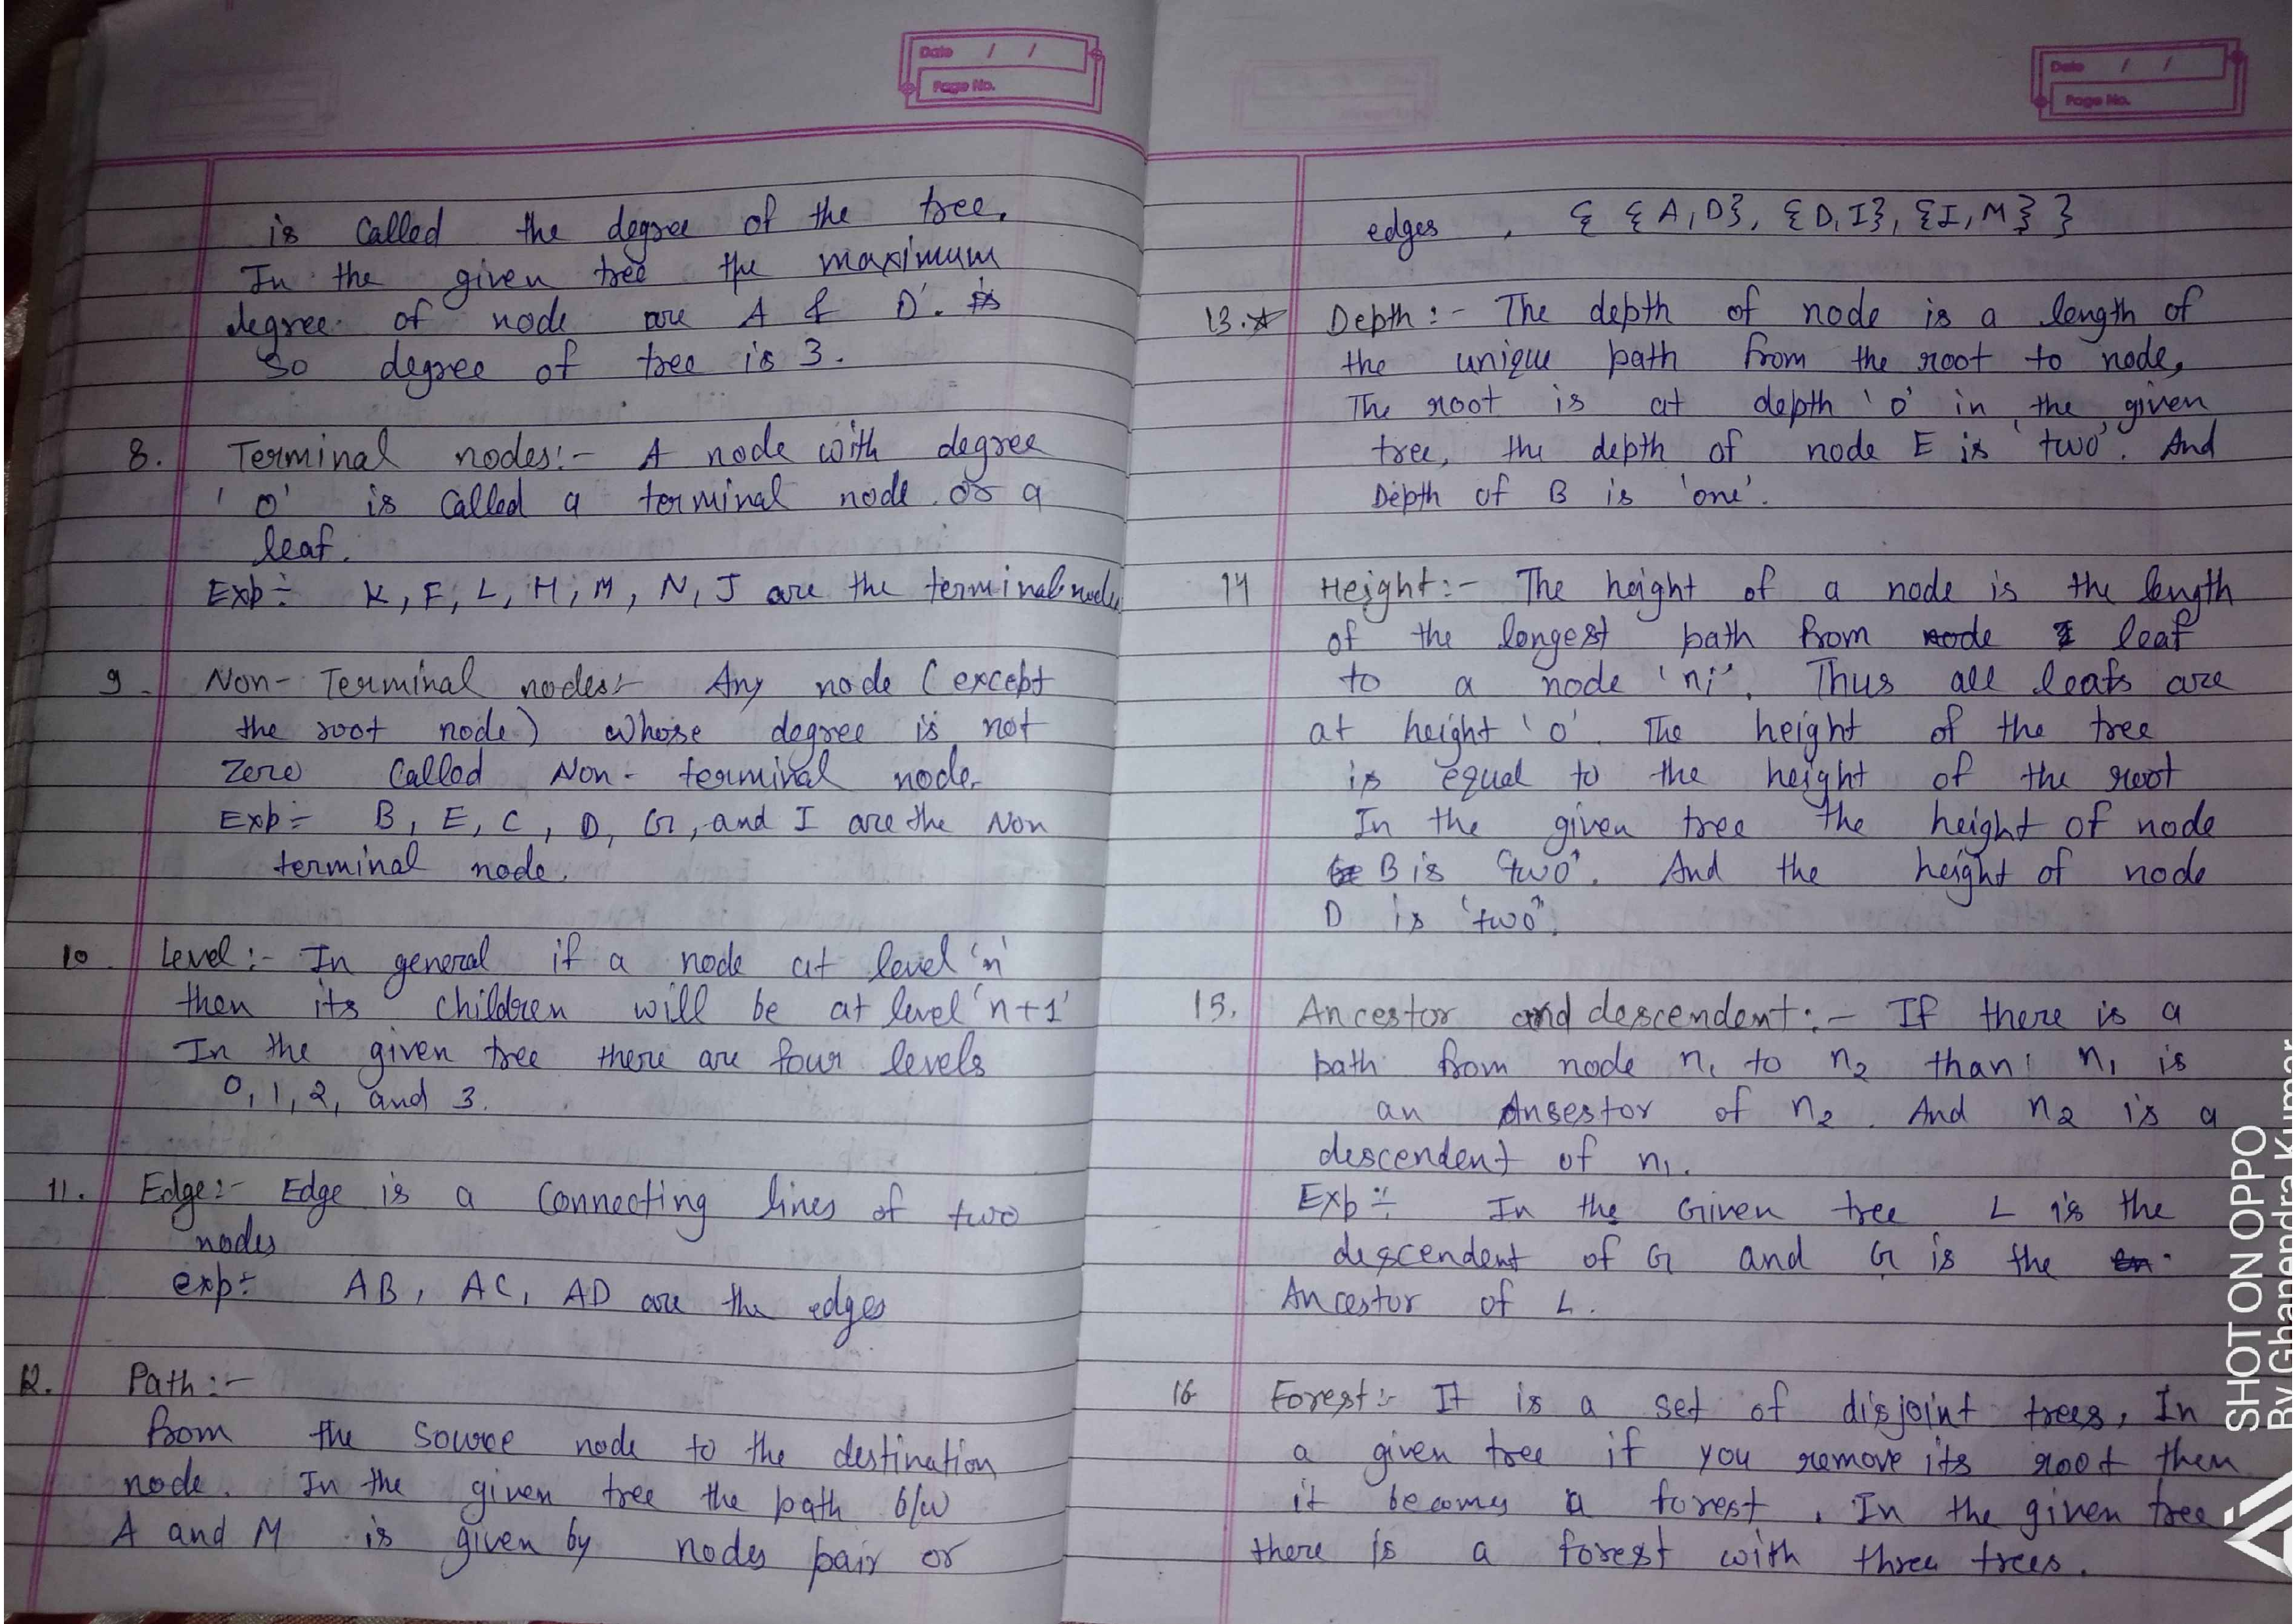 Date / /
Page No.
is Called the degree of the tree.
In the given tree the maximum
degree of node are A & D'.
So degree of tree is 3.
8. Terminal nodes:- A node with degree
'0' is Called a terminal node or a
leaf.
Exp÷ K, F, L, H, M, N, J are the terminal node
9. Non-Terminal nodes:- Any node (except
the root node) whose degree is not
Zero Called Non-terminal node.
Exp÷ B, E, C, D, G, and I are the Non
terminal node.
10. Level:- In general if a node at level 'n'
then its children will be at level 'n+1'
In the given tree there are four levels
0, 1, 2, and 3.
11. Edge:- Edge is a Connecting lines of two
nodes
exp÷ AB, AC, AD are the edges
12. Path:-
from the source node to the destination
node. In the given tree the path b/w
A and M is given by nodes pair or
Date / /
Page No.
edges, { {A,D}, {D,I}, {I,M} }
13.☆ Depth:- The depth of node is a length of
the unique path from the root to node,
The root is at depth '0' in the given
tree, the depth of node E is 'two'. And
Depth of B is 'one'.
14 Height:- The height of a node is the length
of the longest path from node leaf
to a node 'ni'. Thus all leafs are
at height '0'. The height of the tree
is equal to the height of the root
In the given tree the height of node
B is 'two'. And the height of node
D is 'two'.
15. Ancestor and descendent:- If there is a
path from node n₁ to n₂ than n₁ is
an Ansestor of n₂. And n₂ is a
descendent of n₁.
Exp÷ In the Given tree L is the
descendent of G and G is the
Ancestor of L.
16 Forest:- It is a set of disjoint trees, In
a given tree if you remove its root then
it becomes a forest. In the given tree
there is a forest with three trees.
SHOT ON OPPO
By Ghanendra Kumar